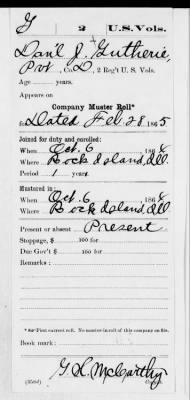 G 2 U.S. Vols.
Dan'l J. Gutherie
Pvt, Co. D, 2 Reg't U. S. Vols.
Age years.
Appears on
Company Muster Roll*
for Dated Feb. 28, 1865
Joined for duty and enrolled:
When Oct. 6, 1864
Where Rock Island, Ill.
Period 1 years.
Mustered in:
When Oct. 6, 1864
Where Rock Island, Ill.
Present or absent Present
Stoppage, $ 100 for
Due Gov't $ 100 for
Remarks:
*First current roll. No muster-in roll of this company on file.
Book mark:
G. L. McCarthy
(856d) Copyist.